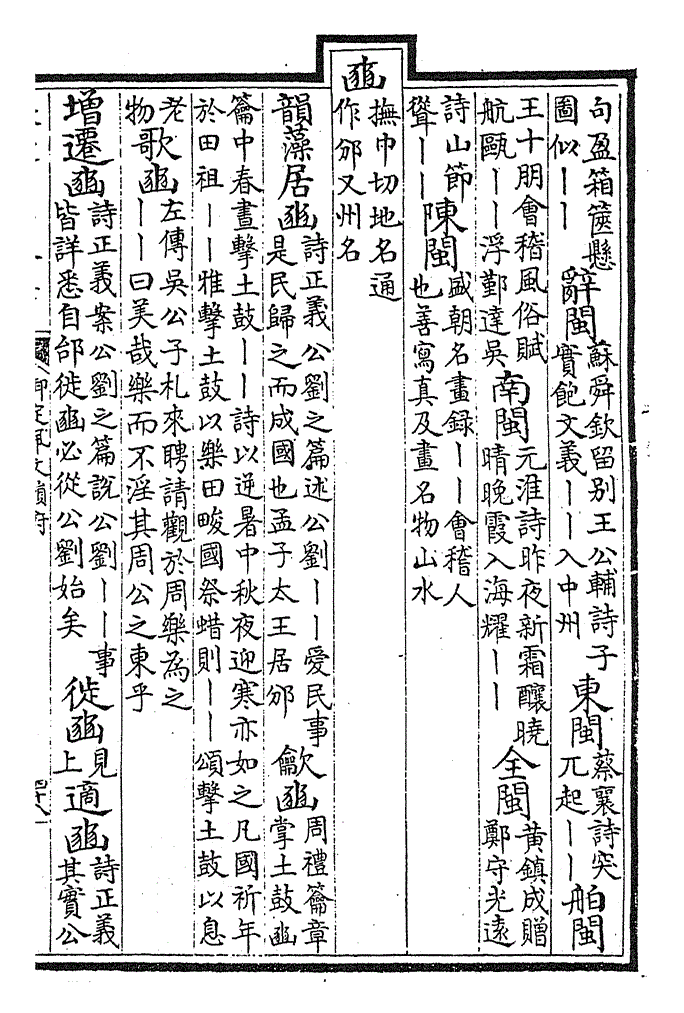 句盈箱篋懸圖似｜｜辭閩蘇舜欽留别王公輔詩子實飽文義｜｜入中州東閩蔡襄詩突兀起｜｜舶閩
王十朋會稽風俗賦航甌｜｜浮鄞達吳南閩元淮詩昨夜新霜釀曉晴晚霞入海耀｜｜全閩黄鎮成贈鄭守光遠
詩山節聳｜｜陳閩盛朝名畫録｜｜會稽人也善寫真及畫名物山水
豳撫巾切地名通作邠又州名
韻藻居豳詩正義公劉之篇述公劉｜｜愛民事是民歸之而成國也孟子太王居邠龡豳周禮籥章掌土鼓豳
籥中春晝擊土鼓｜｜詩以逆暑中秋夜迎寒亦如之凡國祈年於田祖｜｜雅擊土鼓以樂田畯國祭蜡則｜｜頌擊土鼓以息
老物歌豳左傳吳公子札來聘請觀於周樂為之｜｜曰美哉樂而不淫其周公之東乎
增遷豳詩正義案公劉之篇說公劉｜｜事皆詳悉自邰徙豳必從公劉始矣徙豳見上適豳詩正義其實公